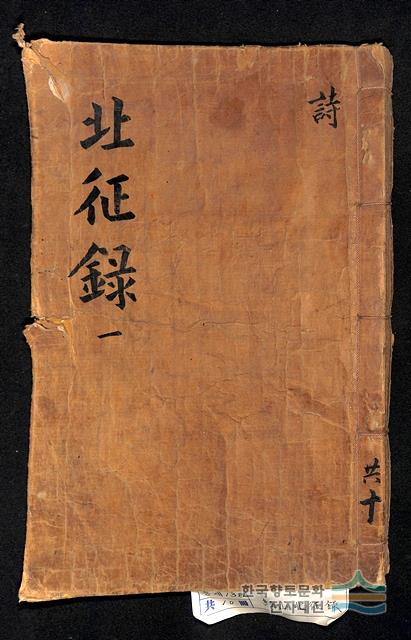 詩
共十
北征錄
一
共 10 冊
한국향토문화
전자대전